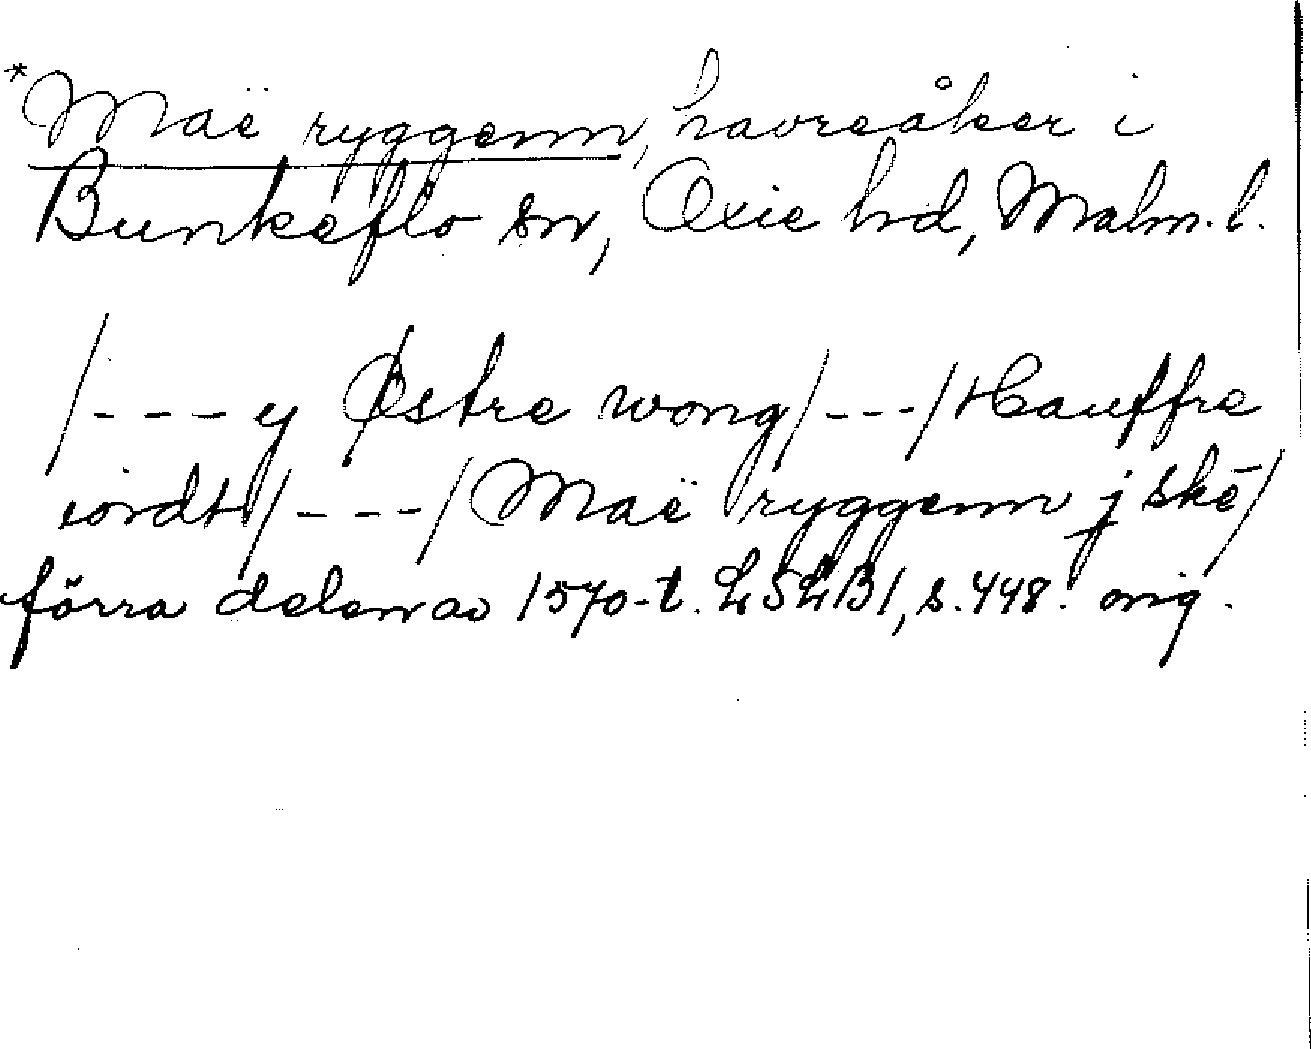 *Maë ryggenn, havreåker i
Bunkeflo sn, Oxie hd, Malm. l.
/--- y Østre wong/---/Hauffre
iordt/---/Maë ryggenn j skē/
förra delen av 1570-t. LSLB1, s. 448. orig.